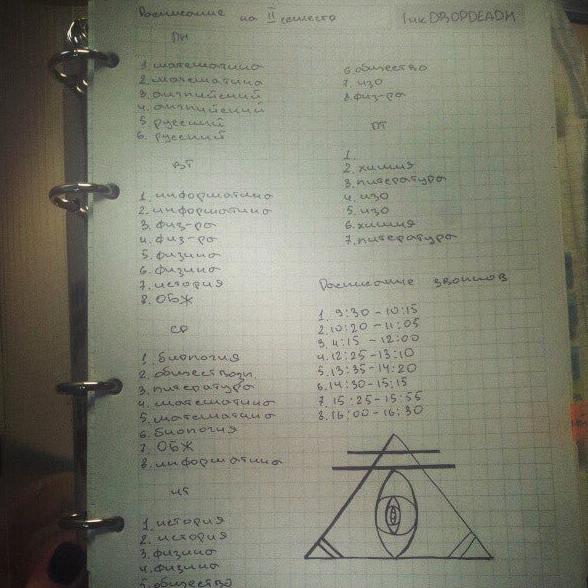 Расписание на II семестр
InkDROPDEADM
ПН
1. математика
2. математика
3. английский
4. английский
5. русский
6. русский
ВТ
1. информатика
2. информатика
3. физ-ра
4. физ-ра
5. физика
6. физика
7. история
8. ОБЖ
СР
1. биология
2. обществозн.
3. литература
4. математика
5. математика
6. биология
7. ОБЖ
8. информатика
ЧТ
1. история
2. история
3. физика
4. физика
5. общество
6. общество
7. изо
8. физ-ра
ПТ
1.
2. химия
3. литература
4. изо
5. изо
6. химия
7. литература
Расписание звонков
1. 9:30 - 10:15
2. 10:20 - 11:05
3. 4:15 - 12:00
4. 12:25 - 13:10
5. 13:35 - 14:20
6. 14:30 - 15:15
7. 15:25 - 15:55
8. 16:00 - 16:30